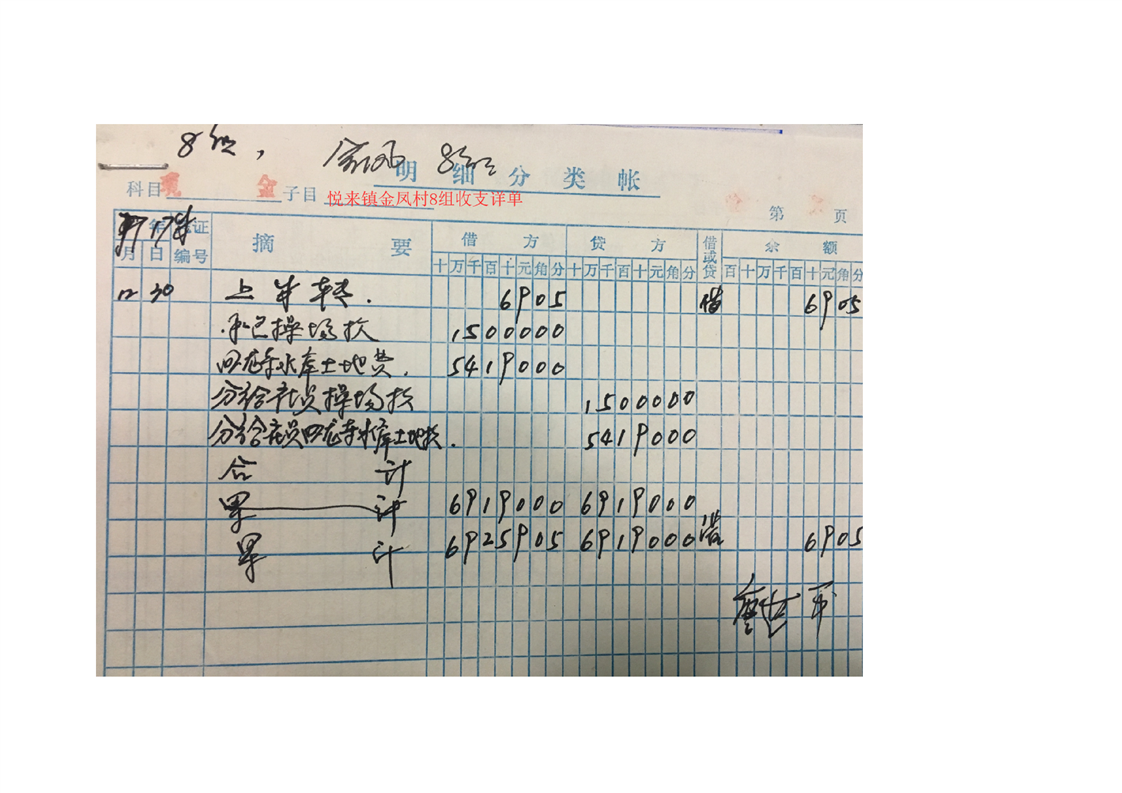 8组, 金凤 8组
明细分类帐
科目 现金 子目 悦来镇金凤村8组收支详单
第 页
17年 凭证 摘要 借方 贷方 借或贷 余额
月 日 编号 十万千百十元角分 十万千百十元角分 百十万千百十元角分
12 30 上年转. 6905 借 6905
承包操场款 1500000
回龙寺水库土地费. 5419000
分给社员操场款 1500000
分给社员回龙寺水库土地款. 5419000
合计
累计 6919000 6919000
累计 6925905 6919000 借 6905